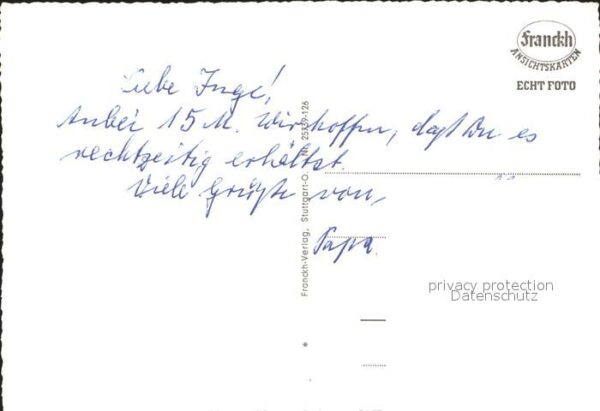 Franckh
ANSICHTSKARTEN
ECHT FOTO
Liebe Inge!
Anbei 15 M. Wir hoffen, daß Du es
rechtzeitig erhältst.
Viele Grüße von,
Papa.
Franckh-Verlag, Stuttgart-O. Nr. 25739-126
privacy protection
Datenschutz